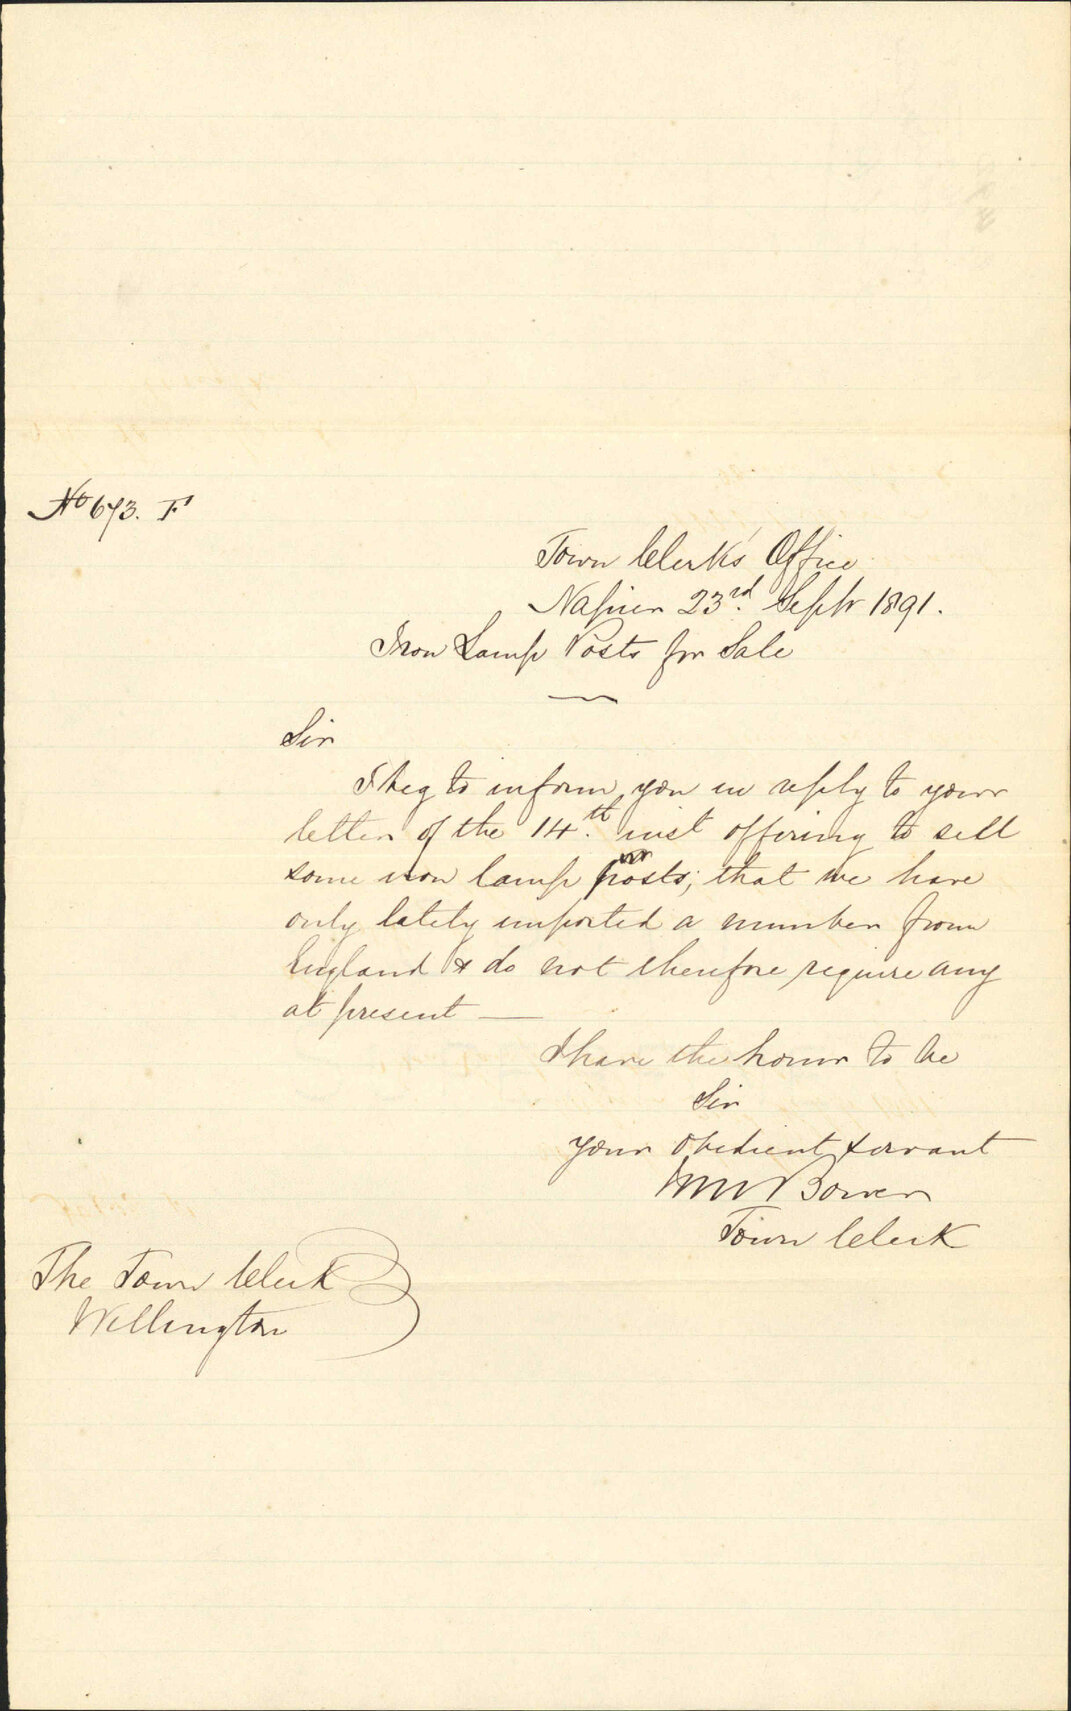 No 673. F
Town Clerk's Office
Napier 23rd. Septr 1891.
Iron Lamp Posts for Sale
Sir
I beg to inform you in reply to your
letter of the 14th. inst offering to sell
some iron lamp posts; that we have
only lately imported a number from
England & do not therefore require any
at present —
I have the honor to be
Sir
your obedient servant
Bowen
Town Clerk
The Town Clerk
Wellington